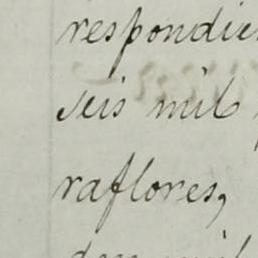 respondie
seis mil
raflores,